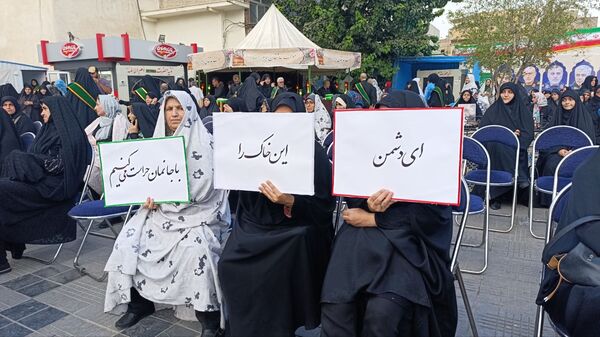 ای دشمن
این خاک را
با جانمان حراست می کنیم